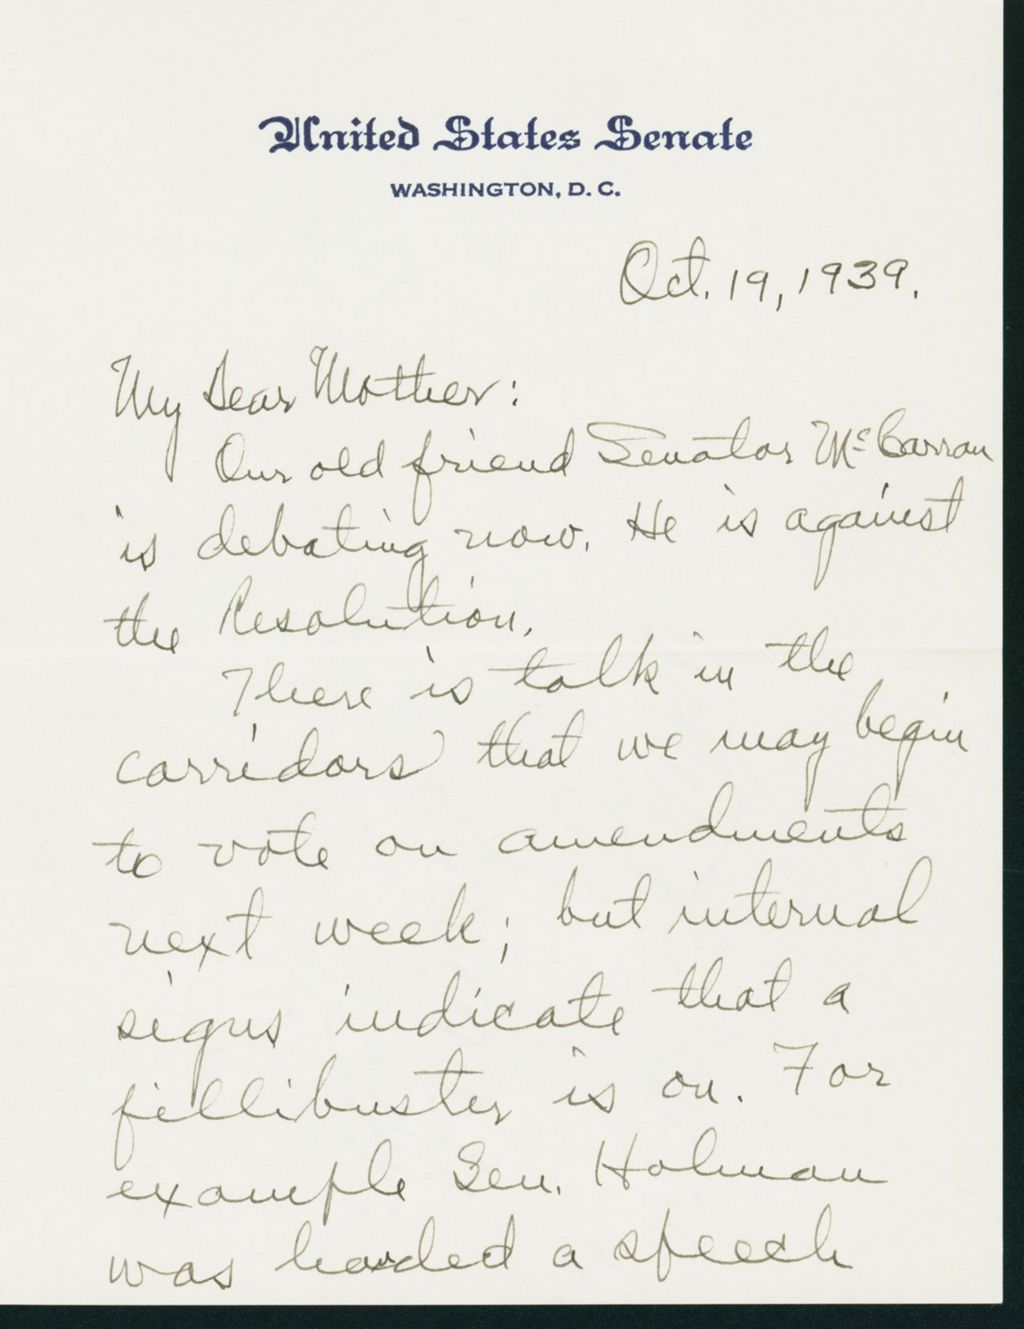 United States Senate
WASHINGTON, D. C.
Oct. 19, 1939.
My Dear Mother:
Our old friend Senator McCarran
is debating now. He is against
the Resolution.
There is talk in the
corridors that we may begin
to vote on amendments
next week; but internal
signs indicate that a
fillibuster is on. For
example Sen. Holman
was handed a speech